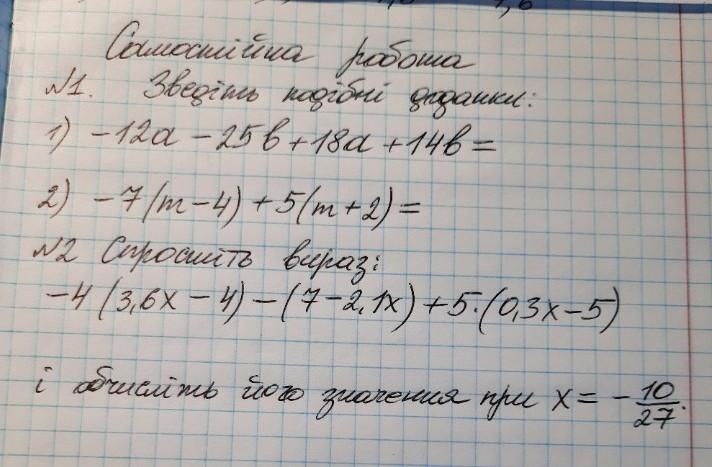 Самостійна робота
№1. Зведіть подібні доданки:
1) -12a - 25b + 18a + 14b =
2) -7(m-4) + 5(m+2) =
№2 Спростіть вираз:
-4(3,6x - 4) - (7 - 2,1x) + 5·(0,3x - 5)
і обчисліть його значення при x = -10/27.